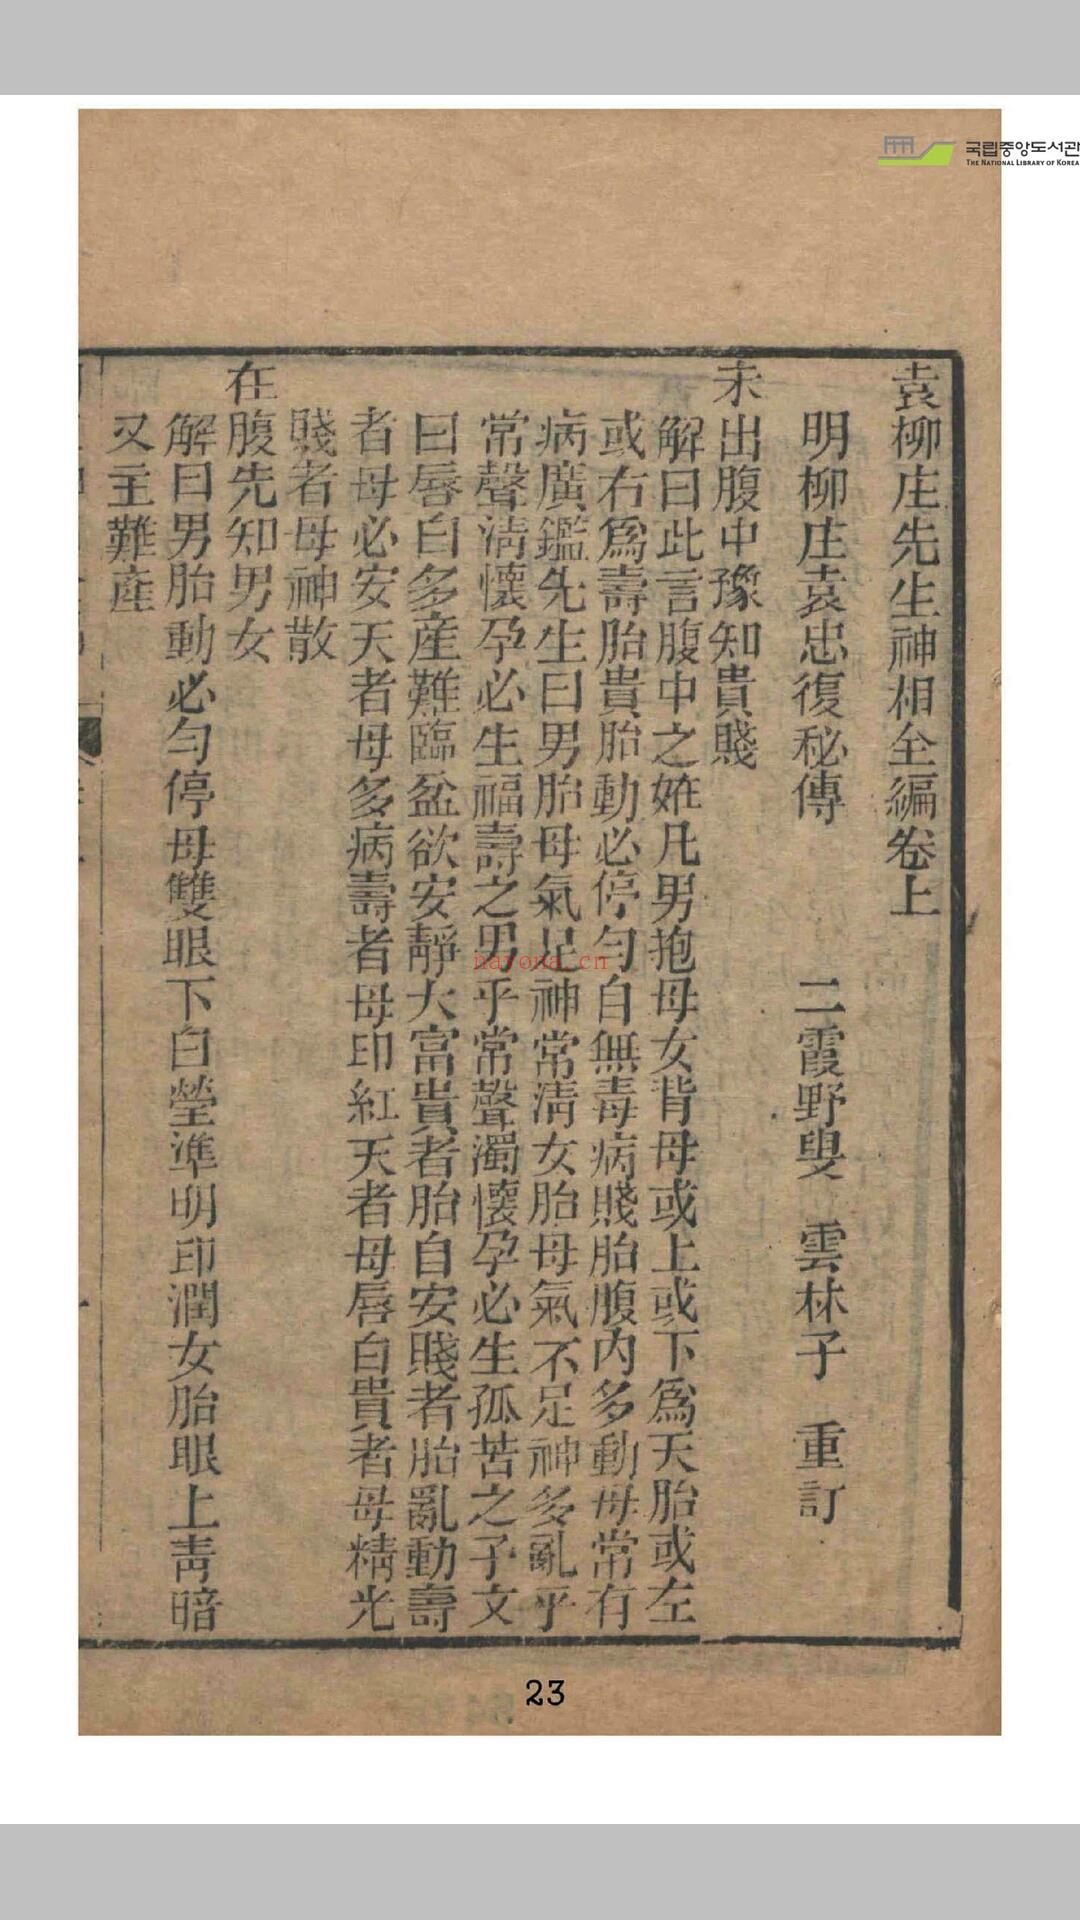 국립중앙도서관
THE NATIONAL LIBRARY OF KOREA
袁柳庄先生神相全編卷上
明柳庄袁忠復秘傳 二霞野叟 雲林子 重訂
未出腹中豫知貴賤
解曰此言腹中之姙凡男抱母女背母或上或下爲天胎或左
或右爲壽胎貴胎動必停勻自無毒病賤胎腹內多動母常有
病廣鑑先生曰男胎母氣足神常清女胎母氣不足神多亂乎
常聲清懷孕必生福壽之男乎常聲濁懷孕必生孤苦之子文
曰唇白多產難臨盆欲安靜大富貴者胎自安賤者胎亂動壽
者母必安夭者母多病壽者母印紅夭者母唇白貴者母精光
賤者母神散
在腹先知男女
解曰男胎動必勻停母雙眼下白瑩準明印潤女胎眼上靑暗
又主難產
nayona.cn
23